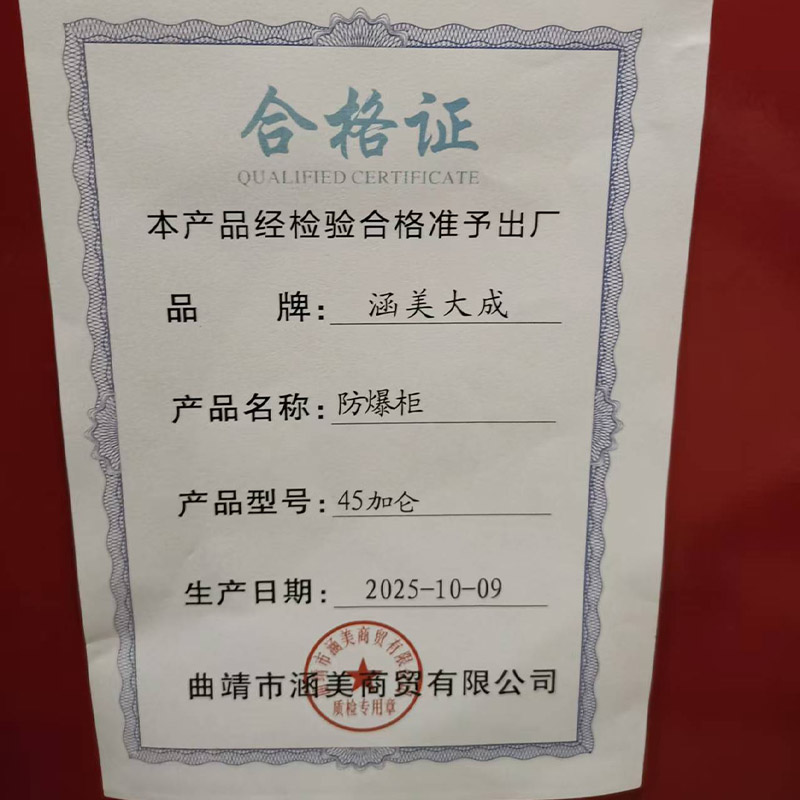 合格证
QUALIFIED CERTIFICATE
本产品经检验合格准予出厂
品 牌: 涵美大成
产品名称: 防爆柜
产品型号: 45加仑
生产日期: 2025-10-09
曲靖市涵美商贸有限公司
市涵美商贸有限
质检专用章